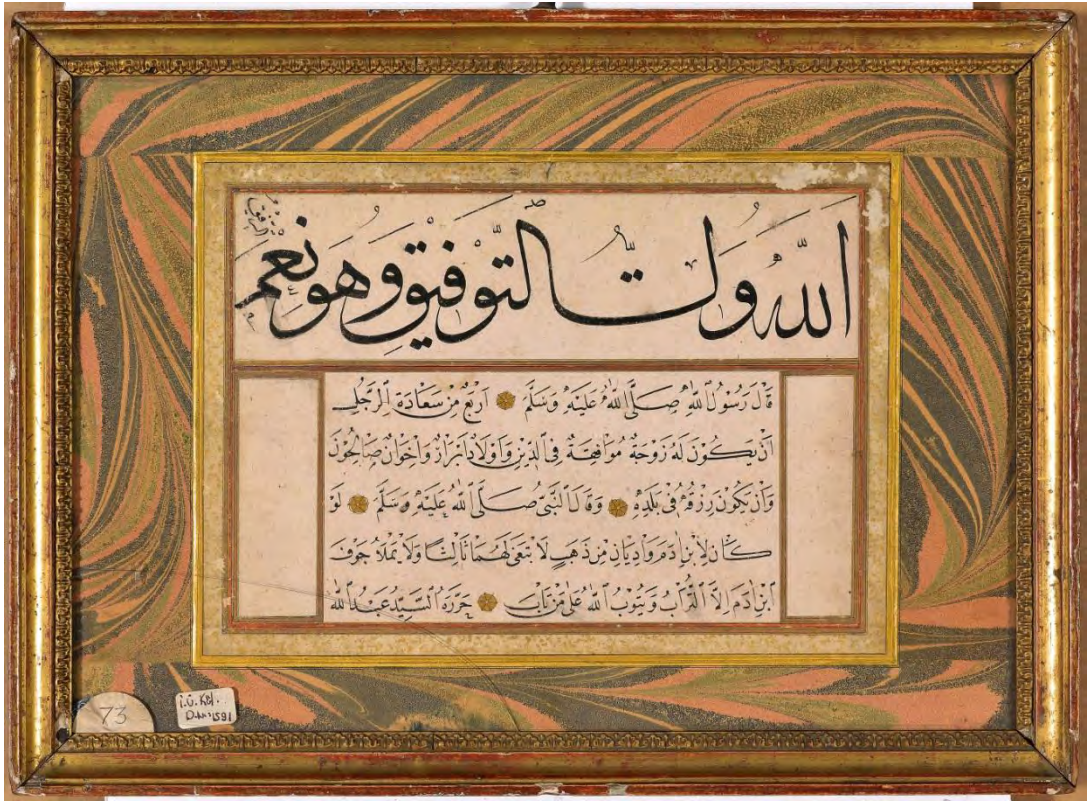 الله ولى التوفيق وهو نعم الرفيق
قَالَ رَسُولُ اللهِ صَلَّى اللهُ عَلَيْهِ وَسَلَّمَ اَرْبَعٌ مِنْ سَعَادَةِ الرَّجُلِ
اَنْ يَكُونَ لَهُ زَوْجَةٌ مُوَافِقَةٌ فِى الدِّينِ وَاَوْلَادٌ اَبْرَارٌ وَاِخْوَانٌ صَالِحُونَ
وَاَنْ يَكُونَ رِزْقُهُ فِى بَلَدِهِ وَقَالَ النَّبِىُّ صَلَّى اللهُ عَلَيْهِ وَسَلَّمَ لَوْ
كَانَ لِابْنِ اٰدَمَ وَادِيَانِ مِنْ ذَهَبٍ لَابْتَغٰى لَهُمَا ثَالِثًا وَلَا يَمْلَأُ جَوْفَ
ابْنِ اٰدَمَ اِلَّا التُّرَابُ وَيَتُوبُ اللهُ عَلٰى مَنْ تَابَ حَرَّرَهُ السَّيِّدُ عَبْدُ اللهِ
73
İ.Ü.
D.No:1591